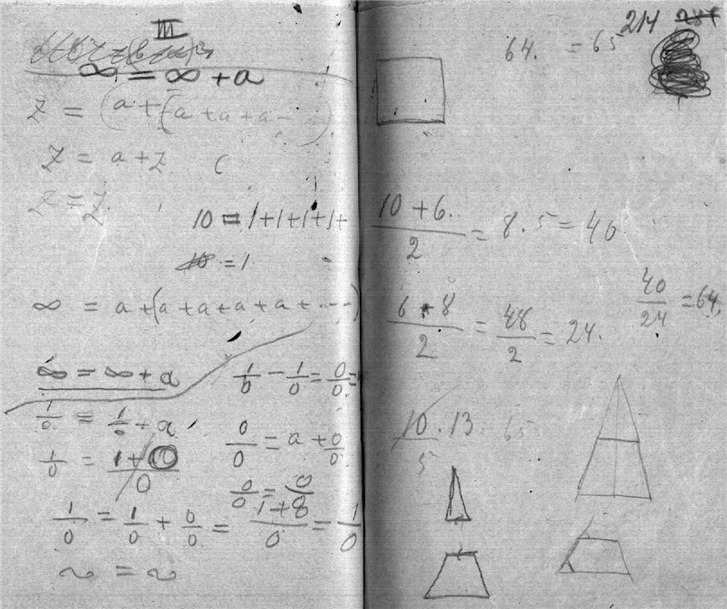 III
∞ = ∞ + a
z = (a + (a + a + a - )
z = a + z (
z = z
10 = 1+1+1+1+
10 = 1
∞ = a + (a + a + a + a + ... )
∞ = ∞ + a
1/0 - 1/0 = 0/0 =
1/0 = 1/0 + a
0/0 = a + 0/0
1/0 = 1+0/0
0/0 = 0/0
1/0 = 1/0 + 0/0 = 1+8/0 = 1/0
∞ = ∞
214
64. = 65
10 + 6./2 = 8.5 = 40
40/24 = 64.
6 + 8/2 = 48/2 = 24.
10.13/5 65